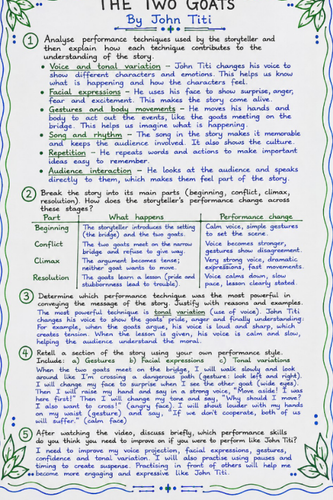 THE TWO GOATS
By John Titi
1 Analyse performance techniques used by the storyteller and
then explain how each technique contributes to the
understanding of the story.
• Voice and tonal variation – John Titi changes his voice to
show different characters and emotions. This helps us know
what is happening and how the characters feel.
• Facial expressions – He uses his face to show surprise, anger,
fear and excitement. This makes the story come alive.
• Gestures and body movements – He moves his hands and
body to act out the events, like the goats meeting on the
bridge. This helps us imagine what is happening.
• Song and rhythm – The song in the story makes it memorable
and keeps the audience involved. It also shows the culture.
• Repetition – He repeats words and actions to make important
ideas easy to remember.
• Audience interaction – He looks at the audience and speaks
directly to them, which makes them feel part of the story.
2 Break the story into its main parts (beginning, conflict, climax,
resolution). How does the storyteller's performance change across
these stages?
Part What happens Performance change
Beginning The storyteller introduces the setting Calm voice, simple gestures
(the bridge) and the two goats. to set the scene.
Conflict The two goats meet on the narrow Voice becomes stronger,
bridge and refuse to give way. gestures show disagreement.
Climax The argument becomes tense; Very strong voice, dramatic
neither goat wants to move. expressions, fast movements.
Resolution The goats learn a lesson (pride and Voice calms down, slow
stubbornness lead to trouble). pace, lesson clearly stated.
3 Determine which performance technique was the most powerful in
conveying the message of the story. Justify with reasons and examples.
The most powerful technique is tonal variation (use of voice) John Titi
changes his voice to show the goats' pride, anger and finally understanding
For example, when the goats argue, his voice is loud and sharp, which
creates tension. When the lesson is given, his voice is calm and slow,
helping the audience understand the moral.
4 Retell a section of the story using your own performance style.
Include: a) Gestures b) Facial expressions c) Tonal variations
When the two goats meet on the bridge, I will walk slowly and look
around like I'm crossing a dangerous path (gesture: look left and right).
I will change my face to surprise when I see the other goat (wide eyes).
Then I will raise my hand and say in a strong voice, "Move aside! I was
here first!" Then I will change my tone and say, "Why should I move?
I also want to cross!" (angry face). I will shout louder with my hands
on my waist (gesture) and say, "If we don't cooperate, both of us
will suffer." (calm face)
5 After watching the video, discuss briefly, which performance skills
do you think you need to improve on if you were to perform like John Titi?
I need to improve my voice projection, facial expressions, gestures,
confidence and tonal variation. I will also practise using pauses and
timing to create suspense. Practising in front of others will help me
become more engaging and expressive like John Titi.